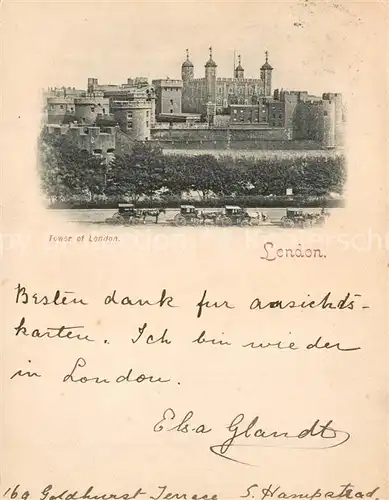 Tower of London.
London.
Besten dank fur ansichts-
karten. Ich bin wieder
in London.
Elsa Glandt
16a Goldhurst Terrace S. Hampstead